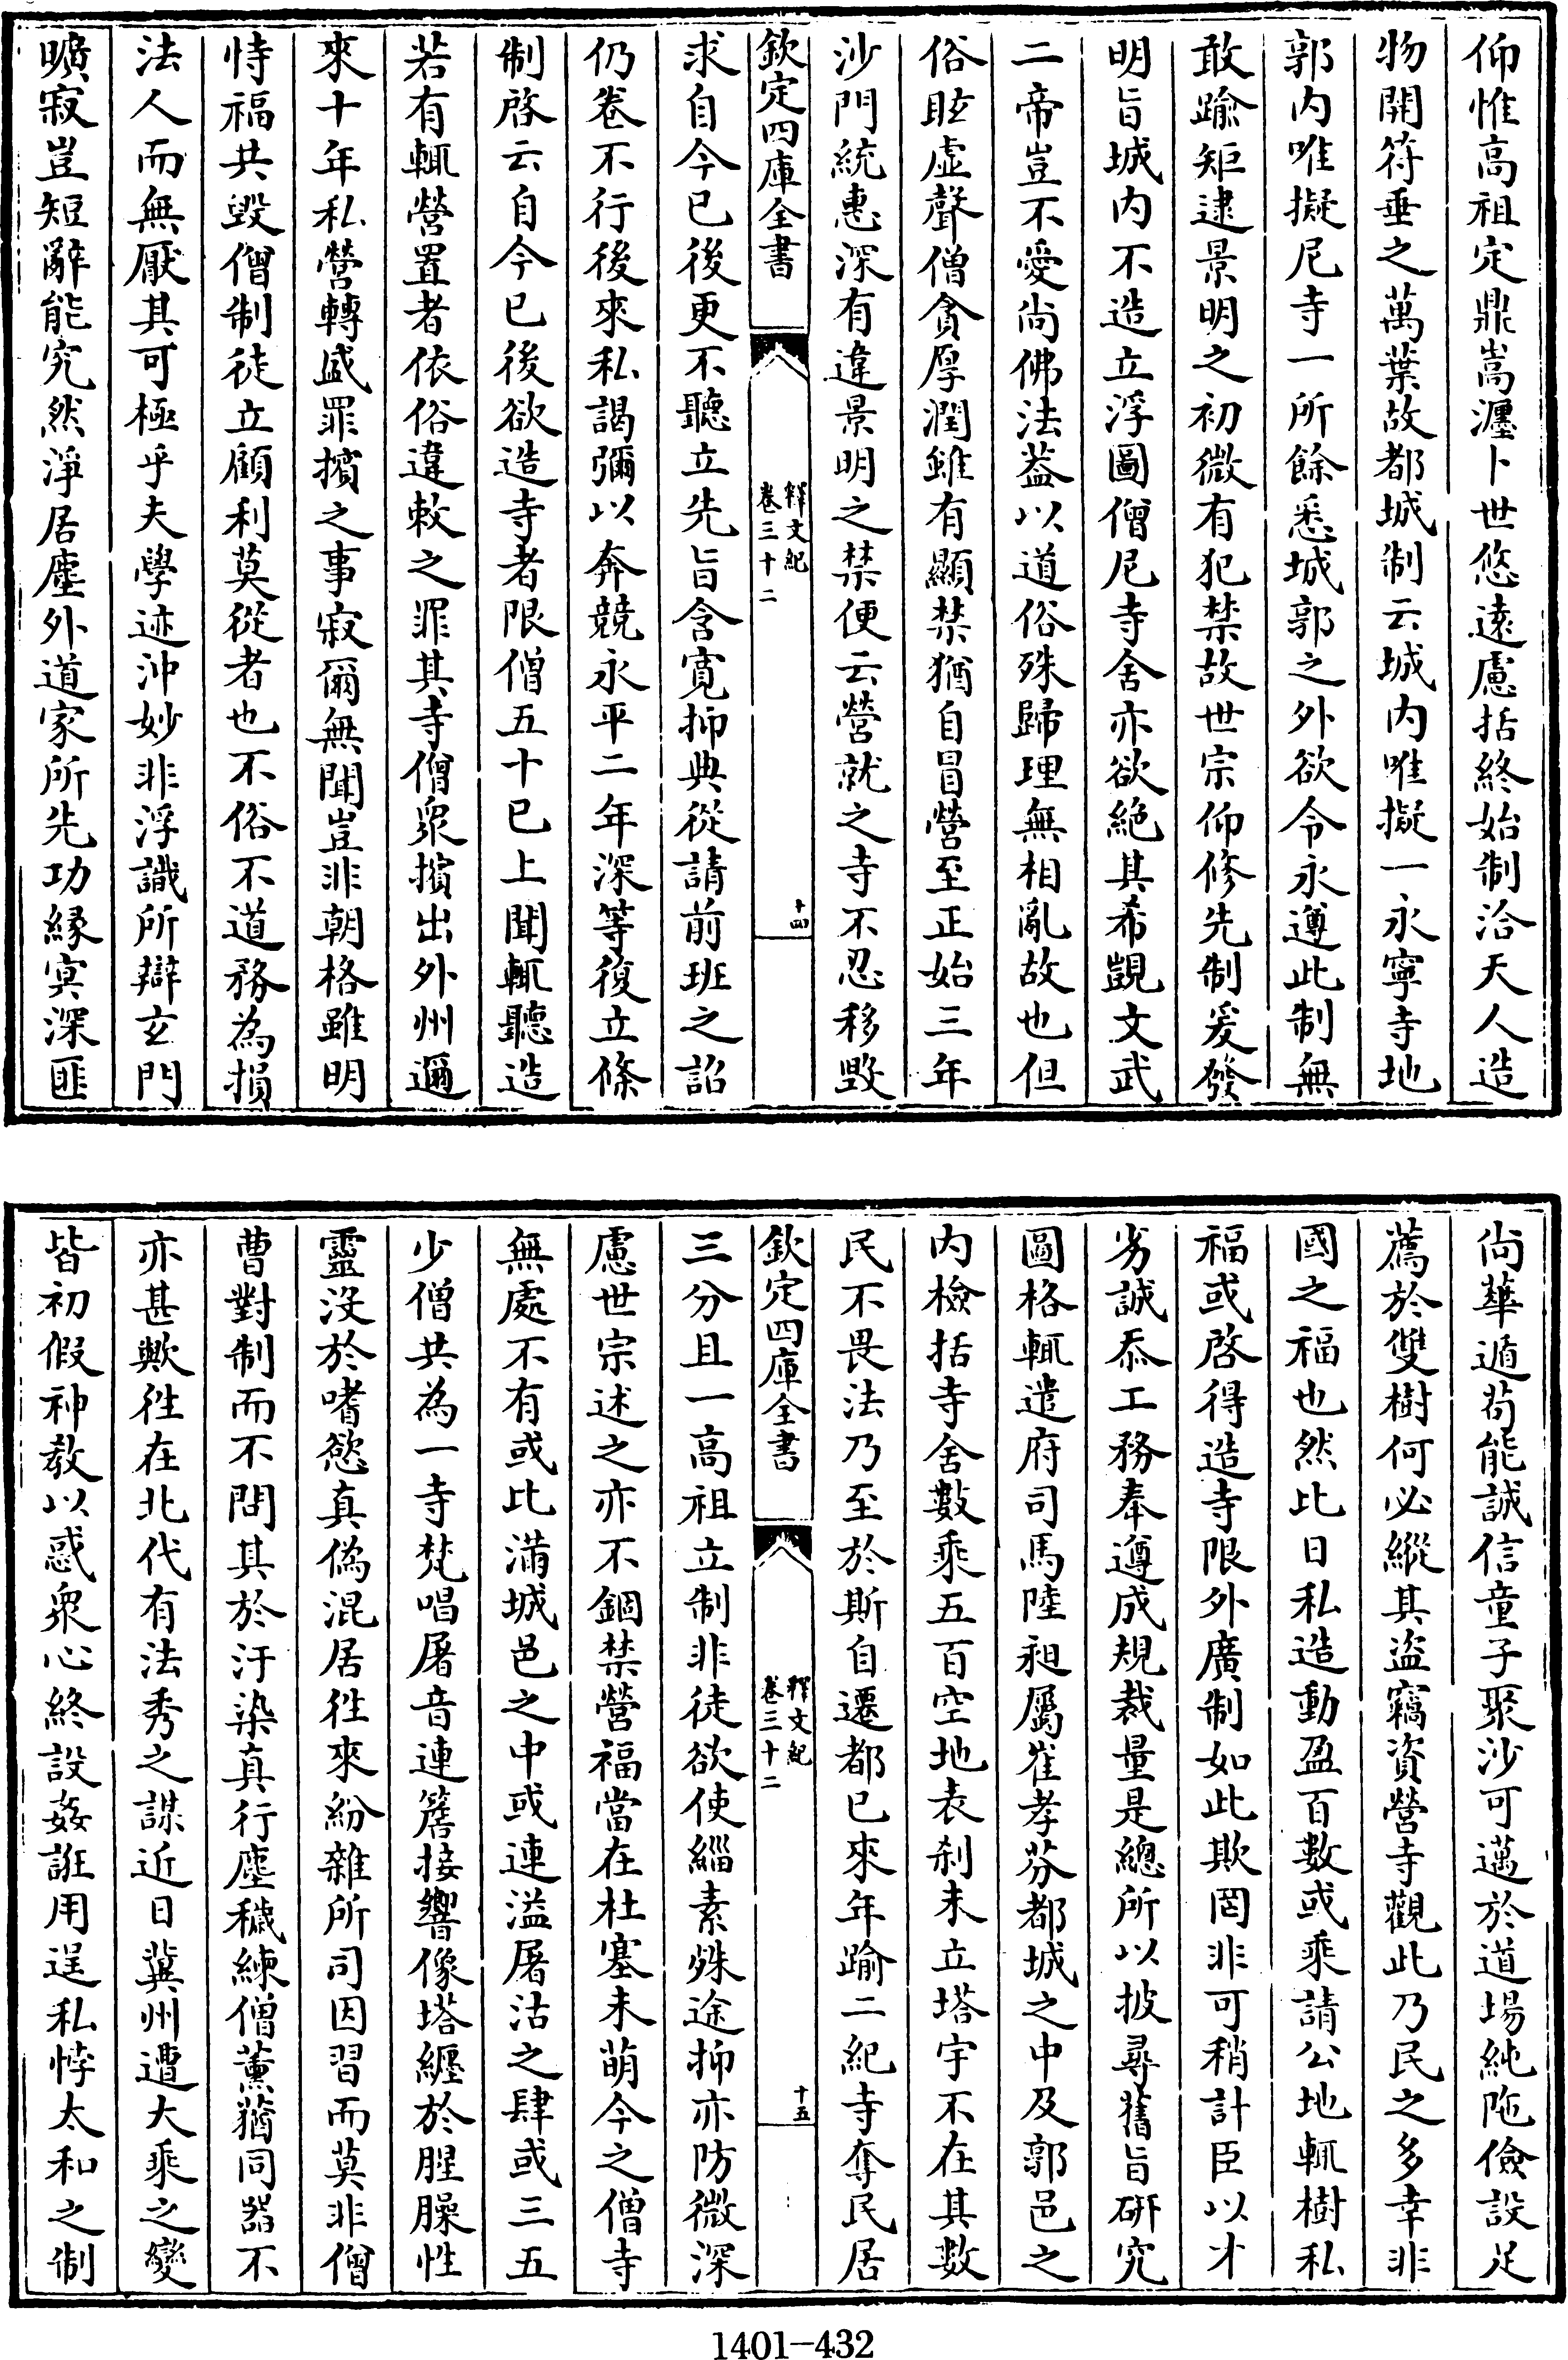 仰惟高祖定鼎嵩瀍卜世悠遠慮括終始制洽天人造
物開符垂之萬葉故都城制云城内唯擬一永寧寺地
郭内唯擬尼寺一所餘悉城郭之外欲令永遵此制無
敢踰矩逮景明之初微有犯禁故世宗仰修先制爰發
明旨城内不造立浮圖僧尼寺舍亦欲絶其希覬文武
二帝豈不愛尚佛法葢以道俗殊歸理無相亂故也但
俗眩虛聲僧貪厚潤雖有顯禁猶自冒營至正始三年
沙門統惠深有違景明之禁便云營就之寺不忍移毀
欽定四庫全書
釋文紀
卷三十二
十四
求自今已後更不聽立先旨含寛抑典從請前班之詔
仍卷不行後來私謁彌以奔競永平二年深等復立條
制啓云自今已後欲造寺者限僧五十已上聞輒聽造
若有輒營置者依俗違敕之罪其寺僧衆擯出外州邇
來十年私營轉盛罪擯之事寂爾無聞豈非朝格雖明
恃福共毀僧制徒立顧利莫從者也不俗不道務為損
法人而無厭其可極乎夫學迹沖妙非浮識所辯玄門
曠寂豈短辭能究然淨居塵外道家所先功緣冥深匪
尚華遁苟能誠信童子聚沙可邁於道場純陁儉設足
薦於雙樹何必縱其盜竊資營寺觀此乃民之多幸非
國之福也然比日私造動盈百數或乘請公地輒樹私
福或啓得造寺限外廣制如此欺罔非可稍計臣以才
劣誠忝工務奉遵成規裁量是總所以披尋舊旨研究
圖格輒遣府司馬陸昶屬崔孝芬都城之中及郭邑之
内檢括寺舍數乘五百空地表刹未立塔宇不在其數
民不畏法乃至於斯自遷都已來年踰二紀寺奪民居
欽定四庫全書
釋文紀
卷三十二
十五
三分且一高祖立制非徒欲使緇素殊途抑亦防微深
慮世宗述之亦不錮禁營福當在杜塞未萌今之僧寺
無處不有或比滿城邑之中或連溢屠沽之肆或三五
少僧共為一寺梵唱屠音連簷接響像塔纒於腥臊性
靈沒於嗜慾真偽混居徃來紛雜所司因習而莫非僧
曹對制而不問其於汙染真行塵穢練僧薰蕕同器不
亦甚歟徃在北代有法秀之謀近日冀州遭大乘之變
皆初假神教以惑衆心終設姦誑用逞私悖太和之制
1401-432